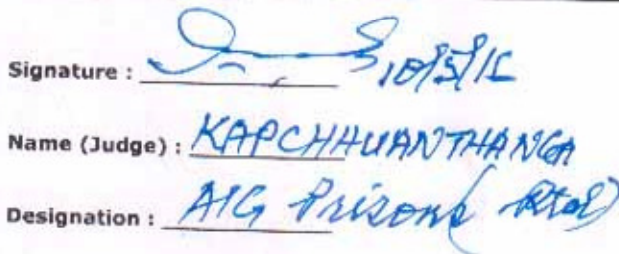 Signature : 10/5/15
Name (Judge) : KAPCHHUANTHANGA
Designation : AIG Prisons (Rtd)